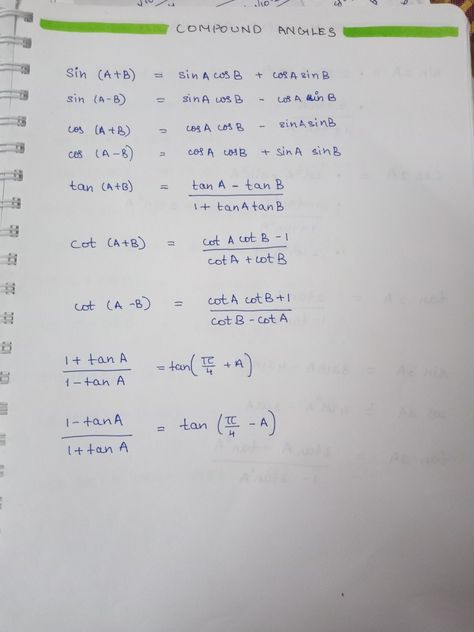 COMPOUND ANGLES
sin (A+B) = sinA cosB + cosA sinB
sin (A-B) = sinA cosB - cosA sinB
cos (A+B) = cosA cosB - sinA sinB
cos (A-B) = cosA cosB + sinA sinB
tan (A+B) = (tan A - tan B)/(1 + tanA tanB)
cot (A+B) = (cot A cot B - 1)/(cot A + cot B)
cot (A-B) = (cot A cot B + 1)/(cot B - cot A)
(1 + tan A)/(1 - tan A) = tan(π/4 + A)
(1 - tan A)/(1 + tan A) = tan (π/4 - A)